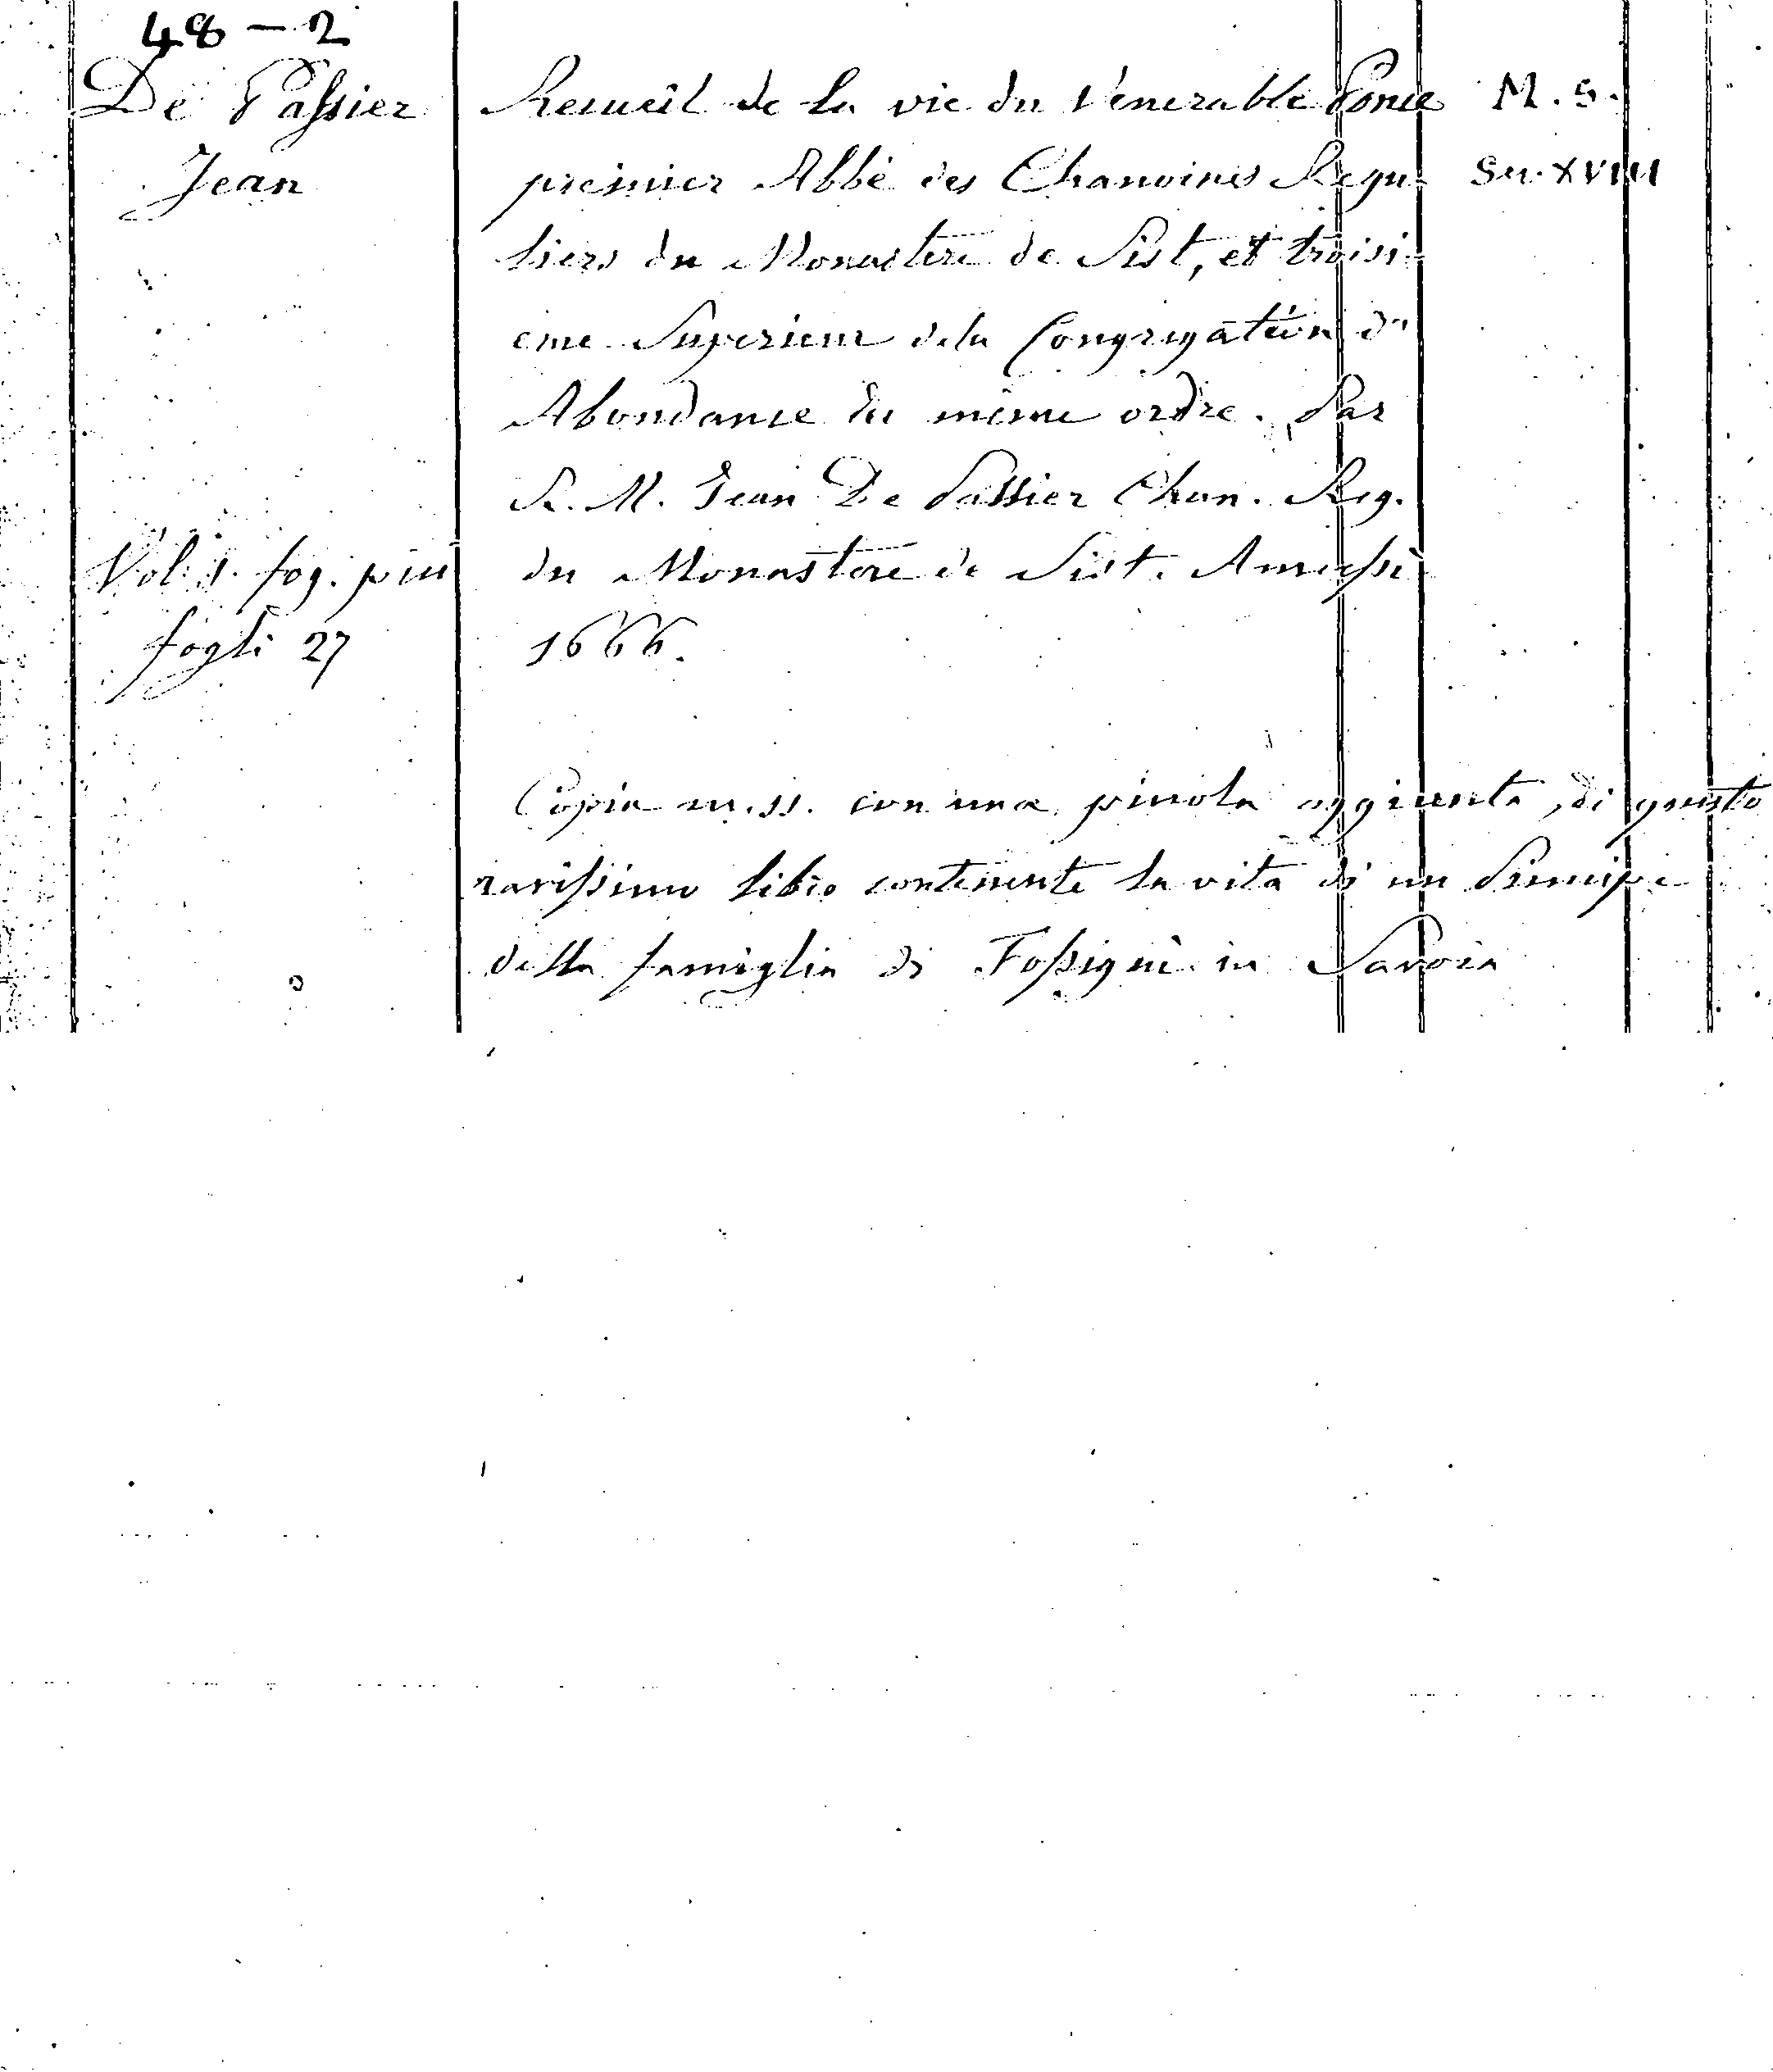 48 - 2
De Passier
Jean
Recueil de la vie du Venerable Ponce
premier Abbé des Chanoines Regu-
liers du Monastere de Sist, et troisi-
eme Superieur de la Congregation d'
Abondance du même ordre. Par
R. M. Jean De Passier Chan. Reg.
du Monastere de Sist. Annessi
1666.
M. S.
Sec. XVIII
Vol. 1. fog. picc
fogli 27
Copia m.ss. con una piccola aggiunta, di questo
rarissimo libro contenente la vita di un Principe
della famiglia di Fossignì in Savoia